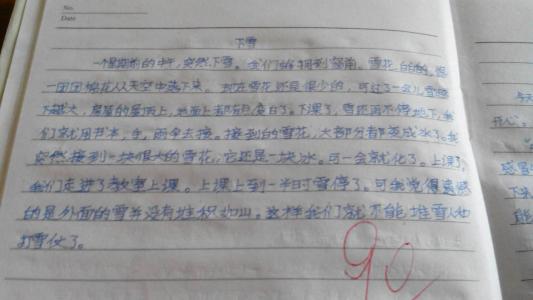 No.
Date
下雪
一个星期前的中午,突然下雪。我们都拥到窗前。雪花白白的,像
一团团棉花从天空中落下来。现在雪花还是很少的,可过了一会儿雪越
下越大,屋顶的屋顶上,地面上都有点变白了。下课了,雪还再不停地下,我
们就用书本,手,雨伞去接。接到的雪花,大部分都变成冰了。我
突然接到一块很大的雪花,它还是一块冰。可一会就化了。上课了,
我们走进了教室上课。上课上到一半时雪停了。可我觉得遗憾
的是外面的雪并没有堆积如山。这样我们就不能堆雪人和
打雪仗了。
90
今天
开心
感
下
能